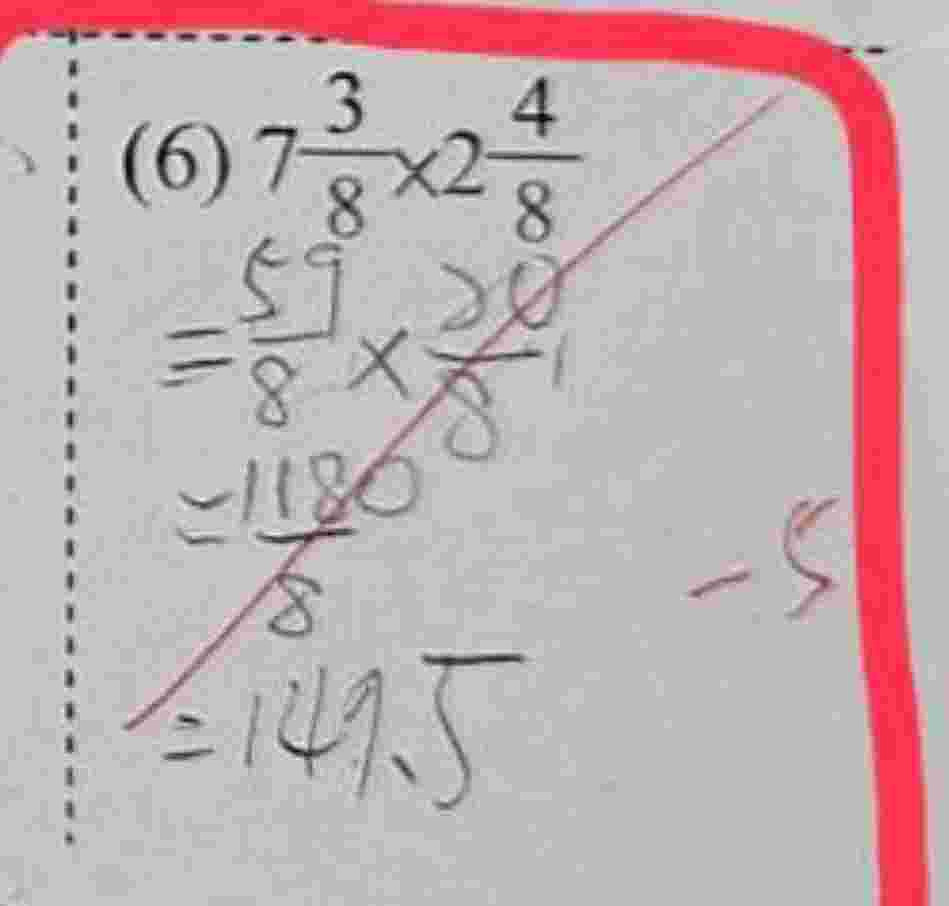 (6) 7 3/8 × 2 4/8
= 59/8 × 20/8
= 1180/8
= 149.5
-5